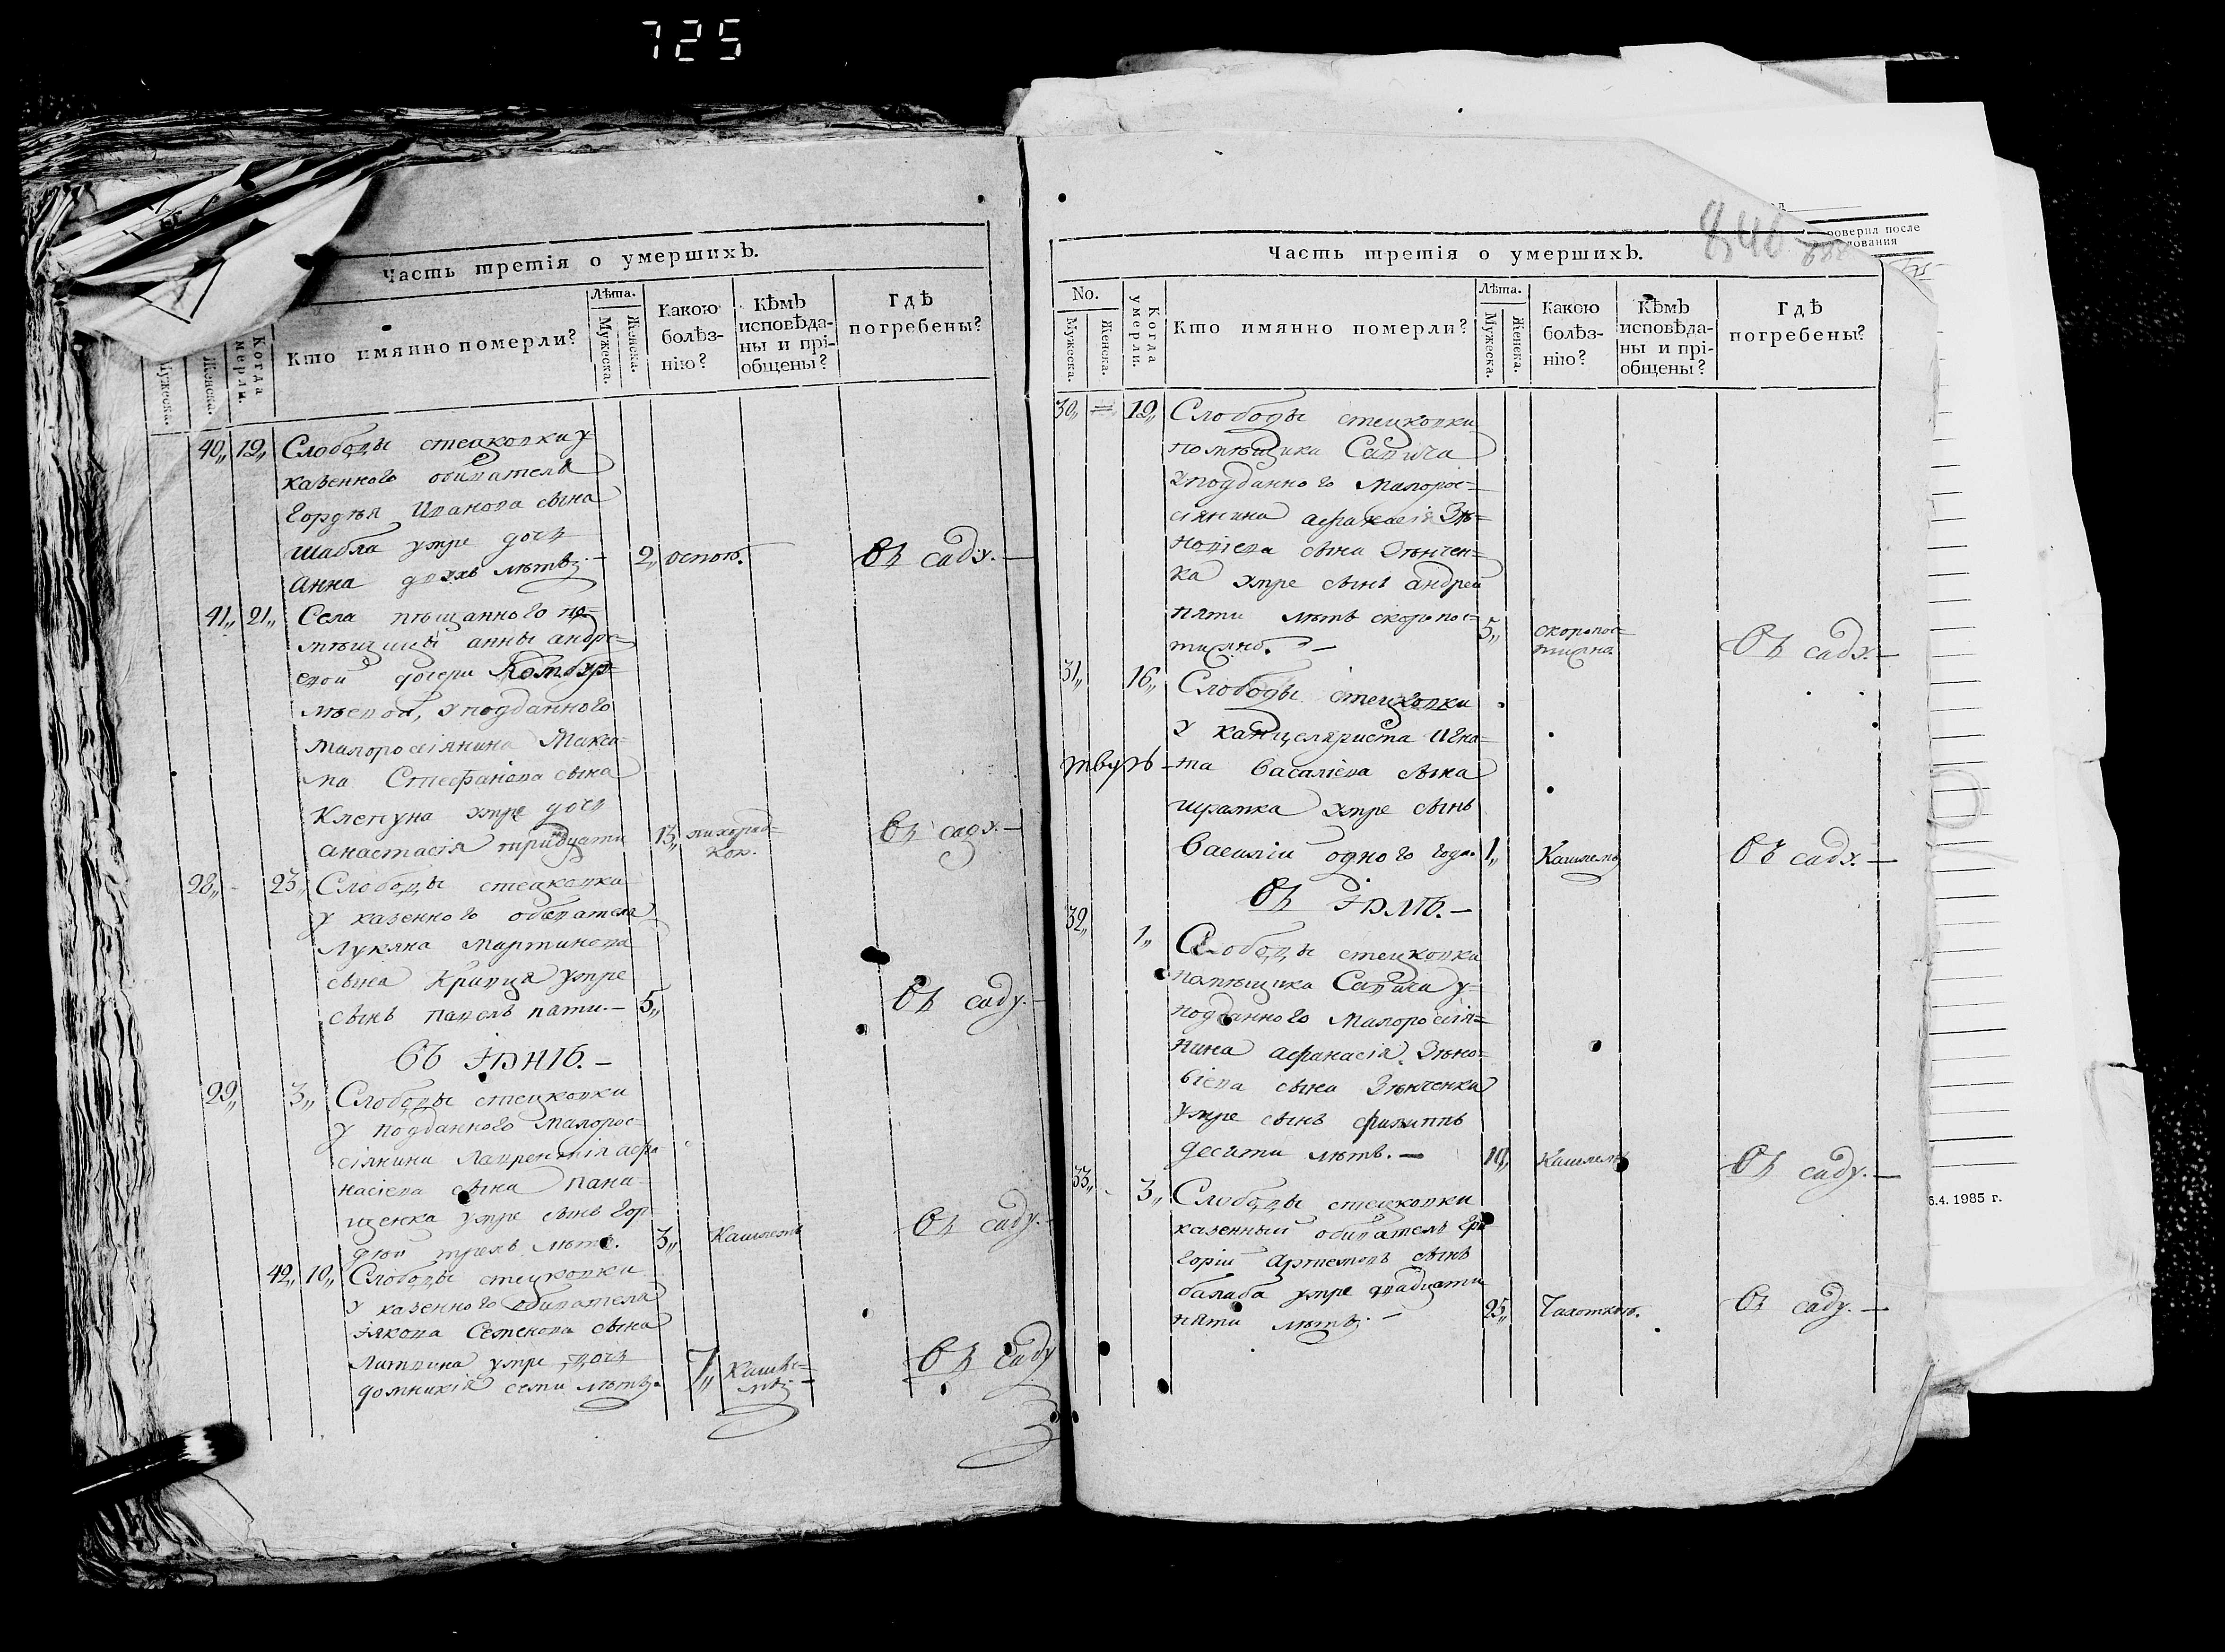 725
Часть третія о умершихъ.
Мужеска.
Женска.
Когда
умерли.
Кто имянно померли?
Лѣта.
Мужеска.
Женска.
Какою
болѣз-
нію?
Кѣмъ
исповѣда-
ны и прі-
общены?
Гдѣ
погребены?
40,, 12,, Слободы стецковки у
казенного обивателя
Гордѣя Иванова сына
Шабла умре дочь
анна двухъ лѣтъ. - 2,, оспою. въ саду. -
41,, 21,, Села пѣщанного по-
мѣщицы анны андре-
евой дочери
подданного
малоросіянина Макси-
ма Стефаніева сына
Клепуна умре дочь
анастасія тринадцати 13,, лихорад-
кою. въ саду. -
28,, - 23,, Слободы стецковки
у казенного обивателя
Лукяна Мартинова
сына Кравця умре
сынъ павелъ пяти. - 5,, въ саду. -
въ Іюнѣ. -
29,, 3,, Слободы стецковки
у подданного малорос-
сіянина Лаврентія афа
насіева сына пана-
щенка умре сынъ Гор-
дѣй трехъ лѣтъ. 3,, Кашлемъ въ саду. -
42,, 10,, Слободы стецковки
у казенного обивателя
Іякова Семенова сына
Литвина умре дочь
домникія семи лѣтъ. 7,, Кашле-
мъ - въ саду
Часть третія о умершихъ.
846
No.
Мужеска.
Женска.
Когда
умерли.
Кто имянно померли?
Лѣта.
Мужеска.
Женска.
Какою
болѣз-
нію?
Кѣмъ
исповѣда-
ны и прі-
общены?
Гдѣ
погребены?
роверил после
дования
30,, = 12,, Слободы стецковки
помѣщика Савича
у подданного Малорос-
сіянина афанасія Зѣ-
новіева сына Зѣнчен-
ка умре сынъ андрей
пяти лѣтъ скоропос-
тижно. - 5,, скоропос-
тижно. въ саду. -
31,, 16,, Слободы стецковки
у канцеляриста Игна-
та Василіева сына
шрамка умре сынъ
Василій одного года. 1,, Кашлемъ въ саду. -
въ Іюлѣ. -
32,, 1,, Слободы стецковки
помѣщика Савича у-
подданного Малоросія-
нина афанасія Зѣно-
віева сына Зѣнченка
умре сынъ филиппъ
десяти лѣтъ. - 10,, Кашлемъ въ саду. -
33,, 3,, Слободы стецковки
казенный обиватель Гри
горій Артемовъ сынъ
балаба умре двадцати
пяти лѣтъ. - 25,, Чахоткою. въ саду. -
6.4. 1985 г.